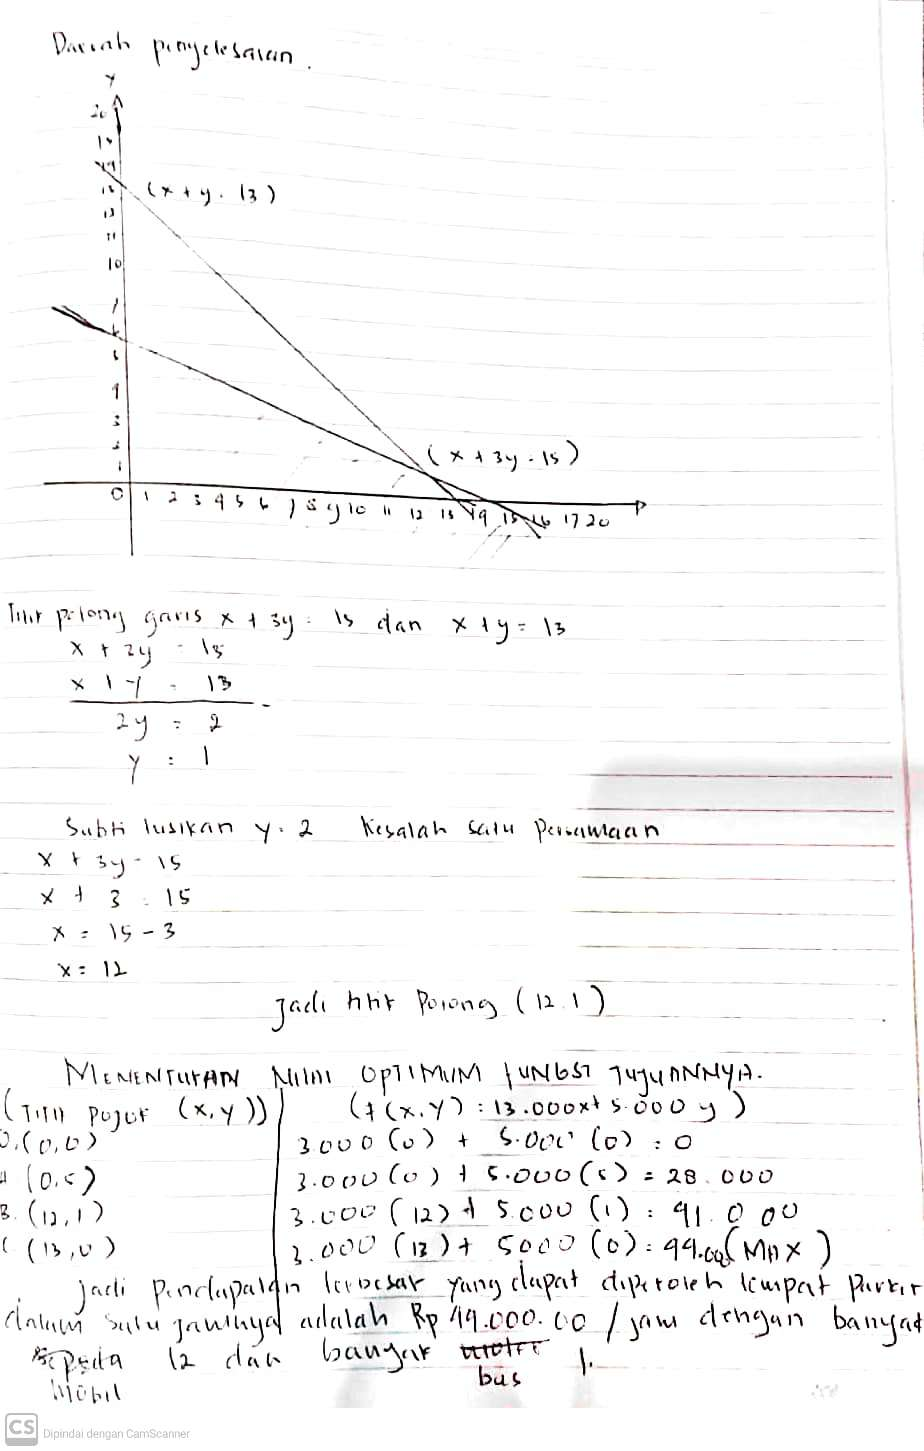 Daerah penyelesaian.
y
20
13
12
11
10
(x + y = 13)
4
3
2
1
(x + 3y = 15)
0 1 2 3 4 5 6 7 8 9 10 11 12 13 14 15 16 17 20
Titik potong garis x + 3y = 15 dan x + y = 13
x + 3y = 15
x + y = 13
2y = 2 -
y = 1
Subtitusikan y = 2 kesalah satu Persamaan
x + 3y = 15
x + 3 = 15
x = 15 - 3
x = 12
Jadi titik Potong (12.1)
MENENTUKAN NILAI OPTIMUM FUNGSI TUJUANNYA.
(TITIK POJOK (x,y)) (f(x.y) = 13.000x + 5.000y)
0.(0,0) 3.000 (0) + 5.000 (0) = 0
A (0.5) 3.000 (0) + 5.000 (5) = 28.000
B. (12,1) 3.000 (12) + 5.000 (1) = 41.000
C (13,0) 3.000 (13) + 5000 (0) = 44.000 (MAX)
Jadi Pendapatan terbesar yang dapat diperoleh tempat Parkir
dalam satu jamnya adalah Rp 44.000.00 / jam dengan banyak
sepeda 12 dan banyak motor 1.
mobil bus
CS Dipindai dengan CamScanner